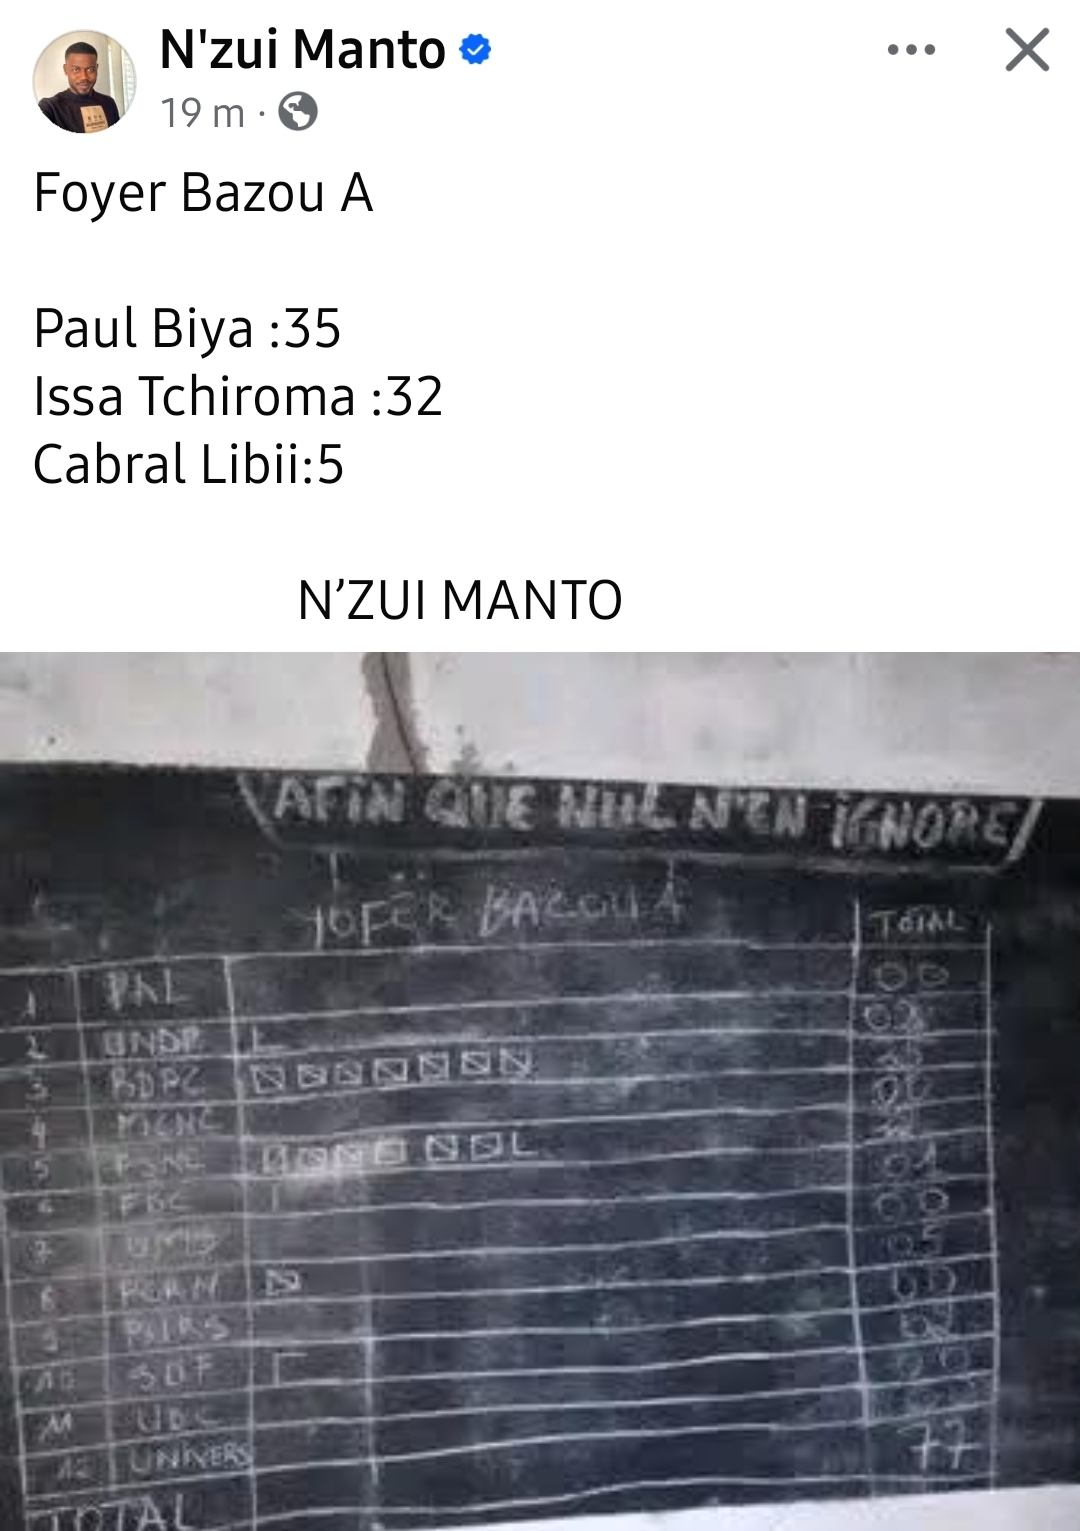 N'zui Manto
19 m ·
Foyer Bazou A
Paul Biya :35
Issa Tchiroma :32
Cabral Libii:5
N’ZUI MANTO
\AFIN QUE NUL N'EN IGNORE/
BAZOU A
TOTAL
1 PAL 00
2 UNDP
3 RDPC
4
5
6 01
7 00
05
9 PURS
10 SDF
11 UDC
12 UNIVERS 77
TOTAL